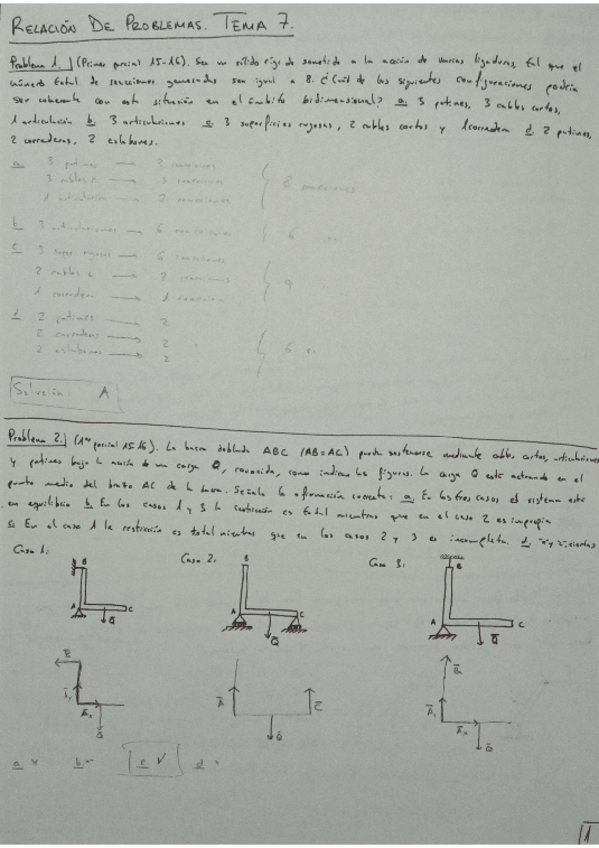 RELACIÓN DE PROBLEMAS. TEMA 7.
Problema 1. (Primer parcial 15-16). Sea un sólido rígido sometido a la acción de varias ligaduras, tal que el
número total de reacciones generadas sea igual a 8. ¿Cuál de las siguientes configuraciones podría
ser coherente con esta situación en el ámbito bidimensional? a: 3 patines, 3 cables cortos,
1 articulación b: 3 articulaciones c: 3 superficies rugosas, 2 cables cortos y 1 corredera d: 2 patines,
2 correderas, 2 eslabones.
a 3 patines → 2 reacciones
3 cables c. → 3 reacciones
1 articulación → 3 reacciones
8 reacciones
b 3 articulaciones → 6 reacciones 6
c 3 super rugosas → 6 reacciones
2 cables c → 2 reacciones
1 corredera → 1 reacción
9
d 2 patines → 2
2 correderas → 2
2 eslabones → 2
6 r.
Solución: A
Problema 2. (1er parcial 15-16). La barra doblada ABC (AB=AC) puede sostenerse mediante cables cortos, articulaciones
y patines bajo la acción de una carga Q, conocida, como indican las figuras. La carga Q está actuando en el
punto medio del brazo AC de la barra. Señala la afirmación correcta: a: En los tres casos el sistema está
en equilibrio b: En los casos 1 y 3 la restricción es total mientras que en el caso 2 es impropia
c: En el caso 1 la restricción es total mientras que en los casos 2 y 3 es incompleta. d:
Caso 1: Caso 2: Caso 3:
B B B
A C A C A C
Q Q Q
B B
A A C A
Ax Q Q Ax Q
a x b c ✓ d
1